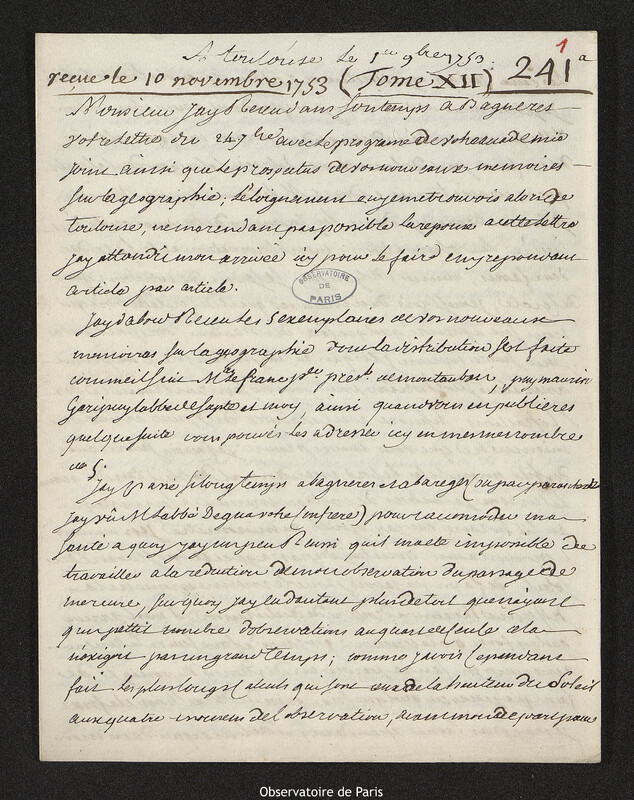 1
A toulouse le 1er 9bre 1753.
reçue le 10 novembre 1753 (Tome XII) 241a
Monsieur Jay Receu dans son temps a Bagneres
votre lettre du 24 7bre avec le programe de votre academie
joint ainsi que le prospectus de vos nouveaux memoires
sur la geographie; l'eloignement ou je me trouvois alors de
toulouse, ne me rendant pas possible la reponse a cette lettre
jay attendu mon arrivée icy pour le faire en y repondant
article par article.
OBSERVATOIRE DE PARIS
Jay d'abord Receu les 5 exemplaires de vos nouveaux
memoires sur la geographie dont la distribution s'est faite
comme il suit Mrs le franc pr pret. de montauban, puymaurin
Garipuy l'abbé de sapte et moy, ainsi quand vous en publieres
quelque suite vous pouvés les adresser icy en mesme nombre
de 5.
Jay passé si long temps a bagneres et a bareges
Jay vû M l'abbé De (confrere) pour racomoder ma
santé a quoy jay un peu Reussi qu'il m'a eté impossible de
travailler a la reduction de mon observation du passage de
mercure, sur quoy jay eu d'autant plus de tort que n'ayant
qu'un petit nombre d'observations au quart de cercle cela
n'exigoit pas un grand temps; comme j'avois cependant
fait les plus longs calculs qui sont ceux de la hauteur du Soleil
aux quatre momens de l'observation, avant mon depart pour
Observatoire de Paris